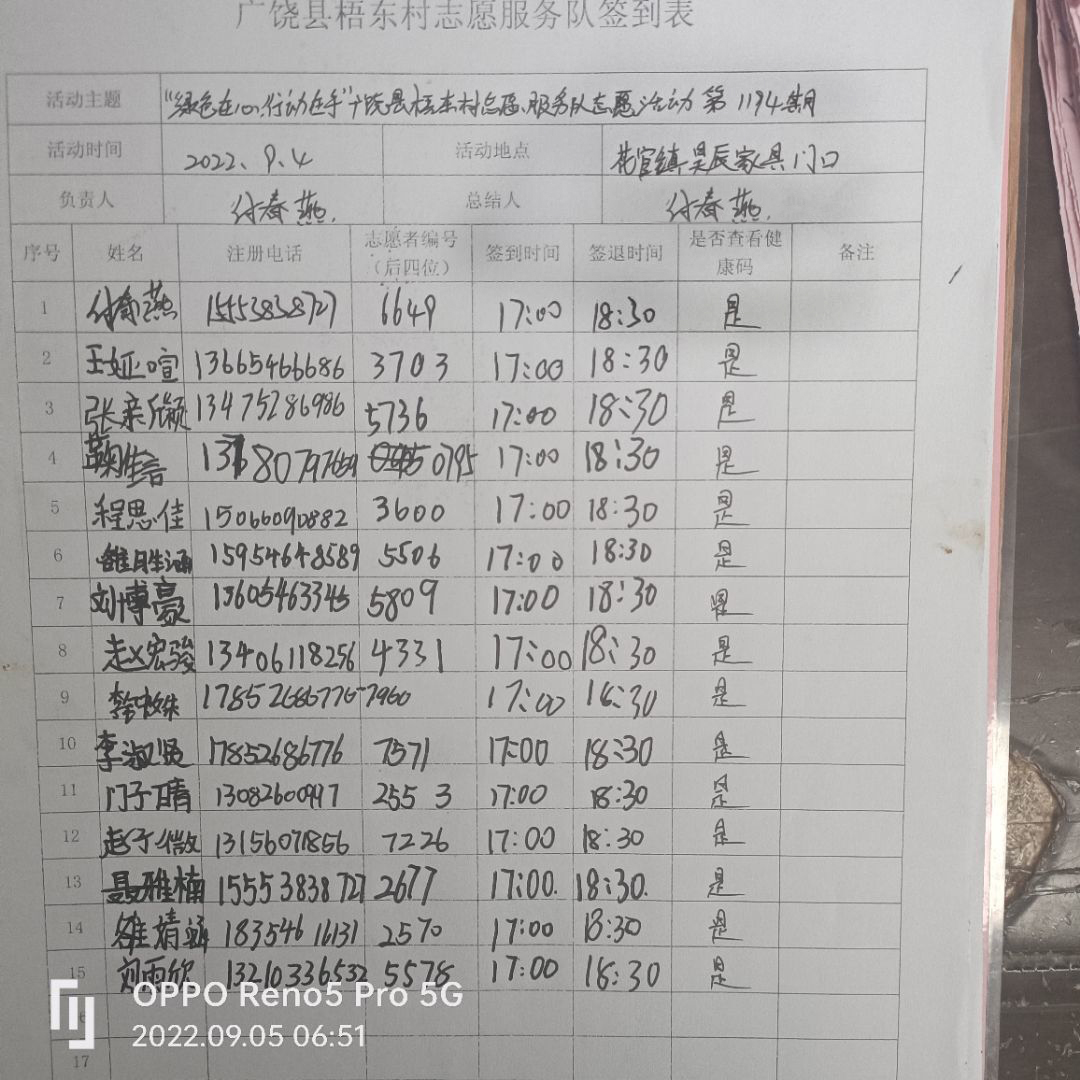 广饶县梧东村志愿服务队签到表
活动主题 "绿色在心,行动在手"广饶县梧东村志愿服务队志愿活动 第1194期
活动时间 2022.9.4 活动地点 花官镇昊辰家具门口
负责人 付春燕. 总结人 付春燕.
序号 姓名 注册电话 志愿者编号（后四位） 签到时间 签退时间 是否查看健康码 备注
1 付春燕 15553838727 6649 17:00 18:30 是
2 王娅喧 13665466686 3703 17:00 18:30 是
3 张亲颀 13475286986 5736 17:00 18:30 是
4 0795 17:00 18:30 是
5 程思佳 15066090882 3600 17:00 18:30 是
6 15954648589 5506 17:00 18:30 是
7 刘博豪 13605463345 5809 17:00 18:30 是
8 赵宏骏 13406118256 4331 17:00 18:30 是
9 17852686776 7960 17:00 18:30 是
10 李淑贤 17852686776 7571 17:00 18:30 是
11 门子晴 13082600997 2553 17:00 18:30 是
12 赵子微 13156071856 7226 17:00 18:30 是
13 聂雅楠 15553838727 2677 17:00. 18:30. 是
14 雒婧涵 18354616131 2570 17:00 18:30 是
15 刘雨欣 13210336532 5578 17:00 18:30 是
OPPO Reno5 Pro 5G
2022.09.05 06:51
17